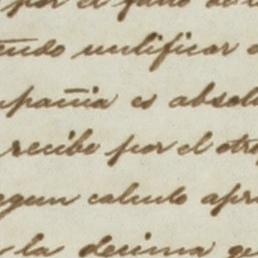 por el
endo unificar
mpañia es absolu
recibe por el otro
egun calculo apr
la decima que